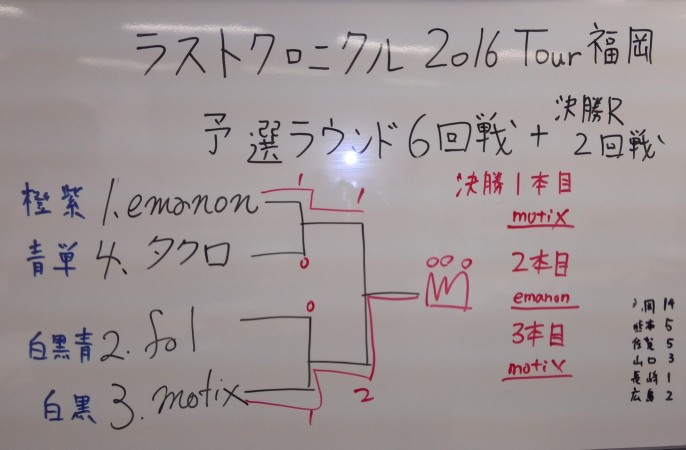 ラストクロニクル 2016 Tour 福岡
予選ラウンド6回戦 + 決勝R 2回戦
橙紫 1. emanon 1 1
青単 4. タクロ 0
白黒青 2. fol 0
白黒 3. motix 1 2
決勝1本目
motix
2本目
emanon
3本目
motix
岡 14
熊本 5
佐賀 5
山口 3
長崎 1
広島 2